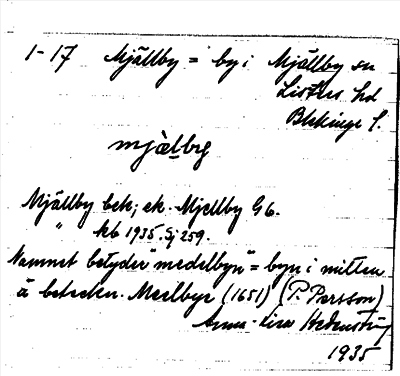 1-17 Mjällby = by i Mjällby sn
Listers hd
Blekinge l.
mjælby
Mjällby bek; ek. Mjellby G6.
" kb 1935. S; 259.
Namnet betyder "medelbyn" = byn i mitten
å betecken. Meelbye (1651) (P. Persson)
Anna-Lisa
1935